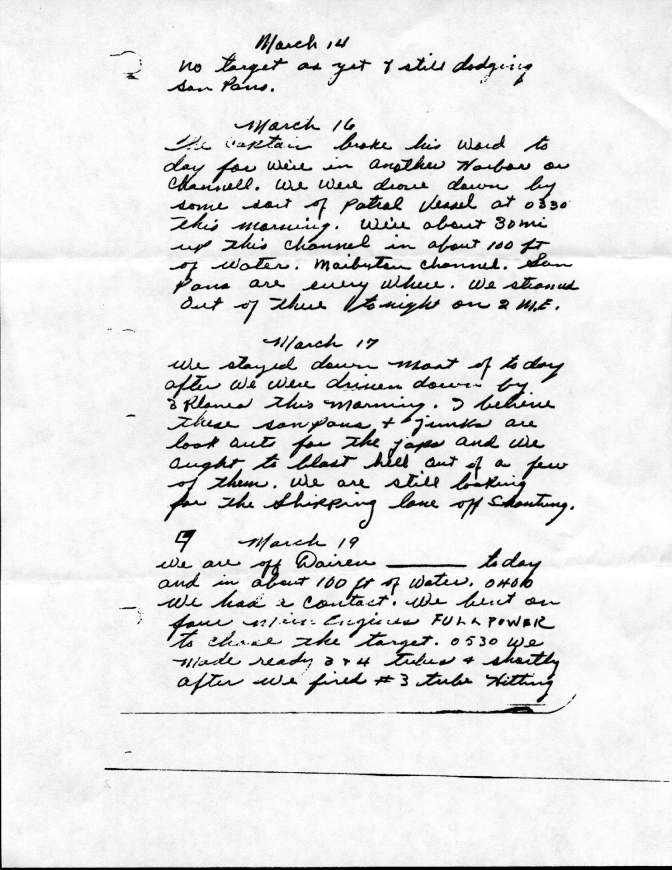 March 14
no target as yet & still dodging
San Pans.
March 16
The Captain broke his word to
day for We're in another Harbor or
Channell. We Were drove down by
some sort of Patrol Vessel at 0330
this morning. We're about 30 mi
up this channel in about 100 ft
of Water. channel. San
Pans are every where. We
Out of there tonight on 2 M.E.
March 17
We stayed down most of today
after We Were driven down by
3 Planes this morning. I believe
these sanpans + junks are
look outs for the japs and We
aught to blast hell out of a few
of them. We are still looking
for the Shipping lane off Shantung.
9 March 19
We are off Dairen ______ today
and in about 100 ft of Water. 0400
We had a contact. We bent on
four Main Engines FULL POWER
to chase the target. 0530 We
made ready 3 + 4 tubes + shortly
after we fired #3 tube Hitting